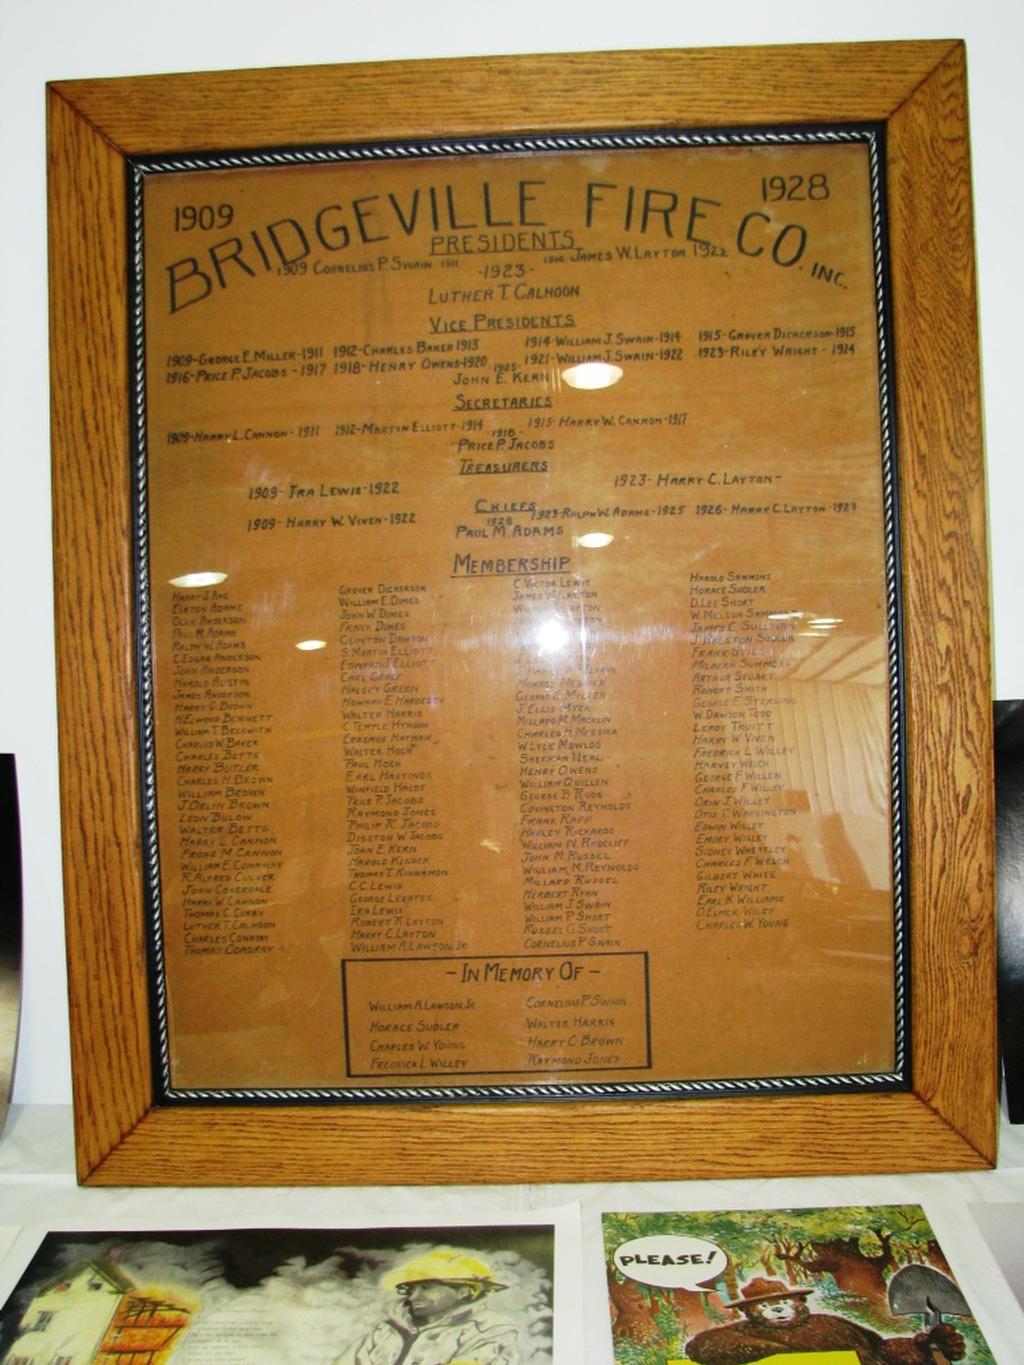 1909
1928
BRIDGEVILLE FIRE CO. INC.
PRESIDENTS
1909 CORNELIUS P. SWAIN 1911
1912 JAMES W. LAYTON 1922
-1923-
LUTHER T. CALHOON
VICE PRESIDENTS
1909-GEORGE E. MILLER-1911 1912-CHARLES BAKER 1913 1914-WILLIAM J. SWAIN-1914 1915-GROVER DICKERSON-1915
1916-PRICE P. JACOBS-1917 1918-HENRY OWENS-1920 1921-WILLIAM J. SWAIN-1922 1923-RILEY WRIGHT-1924
1925
JOHN E. KERN
SECRETARIES
1909-HARRY L. CANNON-1911 1912-MARTIN ELLIOTT-1914 1915-HARRY W. CANNON-1917
-1918-
PRICE P. JACOBS
TREASURERS
1909-IRA LEWIS-1922
1923-HARRY C. LAYTON-
CHIEFS
1909-HARRY W. VIVEN-1922 1923-RALPH W. ADAMS-1925 1926-HARRY C. LAYTON-1927
1928
PAUL M. ADAMS
MEMBERSHIP
HARRY J.
ELTON ADAMS
OLLIE ANDERSON
PAUL M. ADAMS
RALPH W. ADAMS
C. EDGAR ANDERSON
JOHN ANDERSON
HAROLD AUSTIN
JAMES ANDERSON
HARRY C. BROWN
H. ELWOOD BENNETT
WILLIAM T. BECKWITH
CHARLES W. BAKER
CHARLES BETTS
HARRY BUTLER
CHARLES H. BROWN
WILLIAM BROWN
J. ORLIN BROWN
LEON BULOW
WALTER BETTS
HARRY L. CANNON
FRANK M. CANNON
WILLIAM E. CONAWAY
R. ALFRED CULVER
JOHN COVERDALE
HARRY W. CANNON
THOMAS C. CURRY
LUTHER T. CALHOON
CHARLES CONWAY
THOMAS CORDRAY
GROVER DICKERSON
WILLIAM E. DIMES
JOHN W. DIMES
FRANK DIMES
CLINTON DAWSON
S. MARTIN ELLIOTT
EDWARD J. ELLIOTT
CARL GRALF
HALSEY GREEN
HOWARD E. HARDESTY
WALTER HARRIS
C. TEMPLE HYNSON
ERASMUS HAYMAN
WALTER HOCH
PAUL HOCH
EARL HASTINGS
WINFIELD HALDT
PRICE P. JACOBS
RAYMOND JONES
PHILIP R. JACOBS
DISSTON W. JACOBS
JOHN E. KERN
HAROLD KINDER
THOMAS T. KINNAMON
C.C. LEWIS
GEORGE LEKATES
IRA LEWIS
ROBERT R. LAYTON
HARRY C. LAYTON
WILLIAM A. LAWSON, JR
C. VICTOR LEWIS
JAMES W. LAYTON
MESSICK
GEORGE E. MILLER
J. ELLIS MYER
MILLARD M. MACKLIN
CHARLES H. MESSICK
W. LYLE MOWLDS
SHERMAN NEAL
HENRY OWENS
WILLIAM QUILLEN
GEORGE B. RUOS
COVINGTON REYNOLDS
FRANK RAPP
HARLEY RICKARDS
WILLIAM N. RADCLIFF
JOHN M. RUSSEL
WILLIAM M. REYNOLDS
MILLARD RUSSEL
HERBERT RYAN
WILLIAM J. SWAIN
WILLIAM P. SHORT
RUSSEL G. SHORT
CORNELIUS P. SWAIN
HAROLD SAMMONS
HORACE SUDLER
D. LEE SHORT
W. MELSON SAMMONS
JAMES C. SULLIVAN
J. RALSTON SUDLER
FRANK
MILBERN SUMMERS
ARTHUR STUART
ROBERT SMITH
GEORGE E. STERLING
W. DAWSON TODD
LEROY TRUITT
HARRY W. VIVEN
FREDRICK L. WILLEY
HARVEY WELCH
GEORGE F. WILLEN
CHARLES F. WILLEY
ORIN J. WILLEY
OTIS T. WARRINGTON
EDWIN WILLEY
EMORY WILLEY
SIDNEY WHEATLEY
CHARLES F. WELCH
GILBERT WHITE
RILEY WRIGHT
EARL K. WILLIAMS
O. ELMER WILEY
CHARLES W. YOUNG
-IN MEMORY OF-
WILLIAM A. LAWSON, JR.
HORACE SUDLER
CHARLES W. YOUNG
FREDRICK L. WILLEY
CORNELIUS P. SWAIN
WALTER HARRIS
HARRY C. BROWN
RAYMOND JONES
PLEASE!